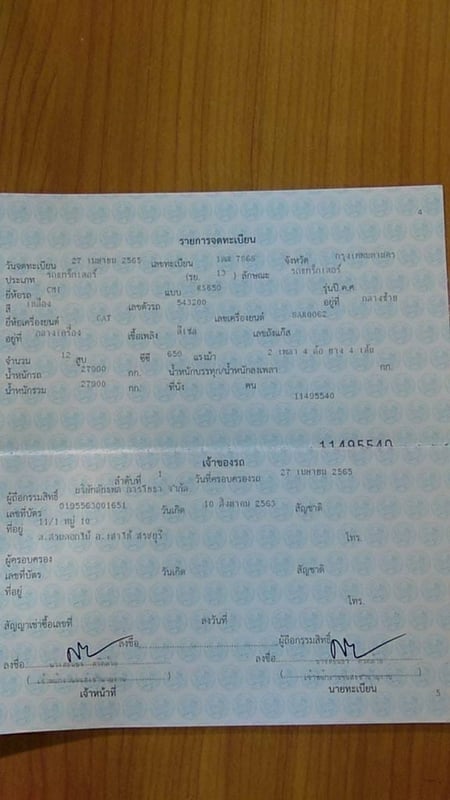 4
รายการจดทะเบียน
วันจดทะเบียน 27 เมษายน 2565 เลขทะเบียน 7868 จังหวัด กรุงเทพมหานคร
ประเภท รถแทร็กเตอร์ (รย. 13 ) ลักษณะ รถแทร็กเตอร์
ยี่ห้อรถ แบบ RS650 รุ่นปี ค.ศ.
สี เหลือง เลขตัวรถ 543200 อยู่ที่ กลางซ้าย
ยี่ห้อเครื่องยนต์ CAT เลขเครื่องยนต์ SAR0062
อยู่ที่ กลางเครื่อง เชื้อเพลิง ดีเซล เลขถังแก๊ส
จำนวน 12 สูบ ซีซี 650 แรงม้า 2 เพลา 4 ล้อ ยาง 4 เส้น
น้ำหนักรถ 27900 กก. น้ำหนักบรรทุก/น้ำหนักลงเพลา กก.
น้ำหนักรวม 27900 กก. ที่นั่ง คน
11495540
11495540
เจ้าของรถ
ลำดับที่ 1 วันที่ครอบครองรถ 27 เมษายน 2565
ผู้ถือกรรมสิทธิ์ บริษัท จำกัด
เลขที่บัตร 0195563001651 วันเกิด 10 สิงหาคม 2563 สัญชาติ
ที่อยู่ 11/1 หมู่ 10
ต.สวนดอกไม้ อ.เสาไห้ สระบุรี โทร.
ผู้ครอบครอง
เลขที่บัตร วันเกิด สัญชาติ
ที่อยู่
โทร.
สัญญาเช่าซื้อเลขที่ ลงวันที่
ลงชื่อ ผู้ถือกรรมสิทธิ์
ลงชื่อ ลงชื่อ
เจ้าหน้าที่ นายทะเบียน
5